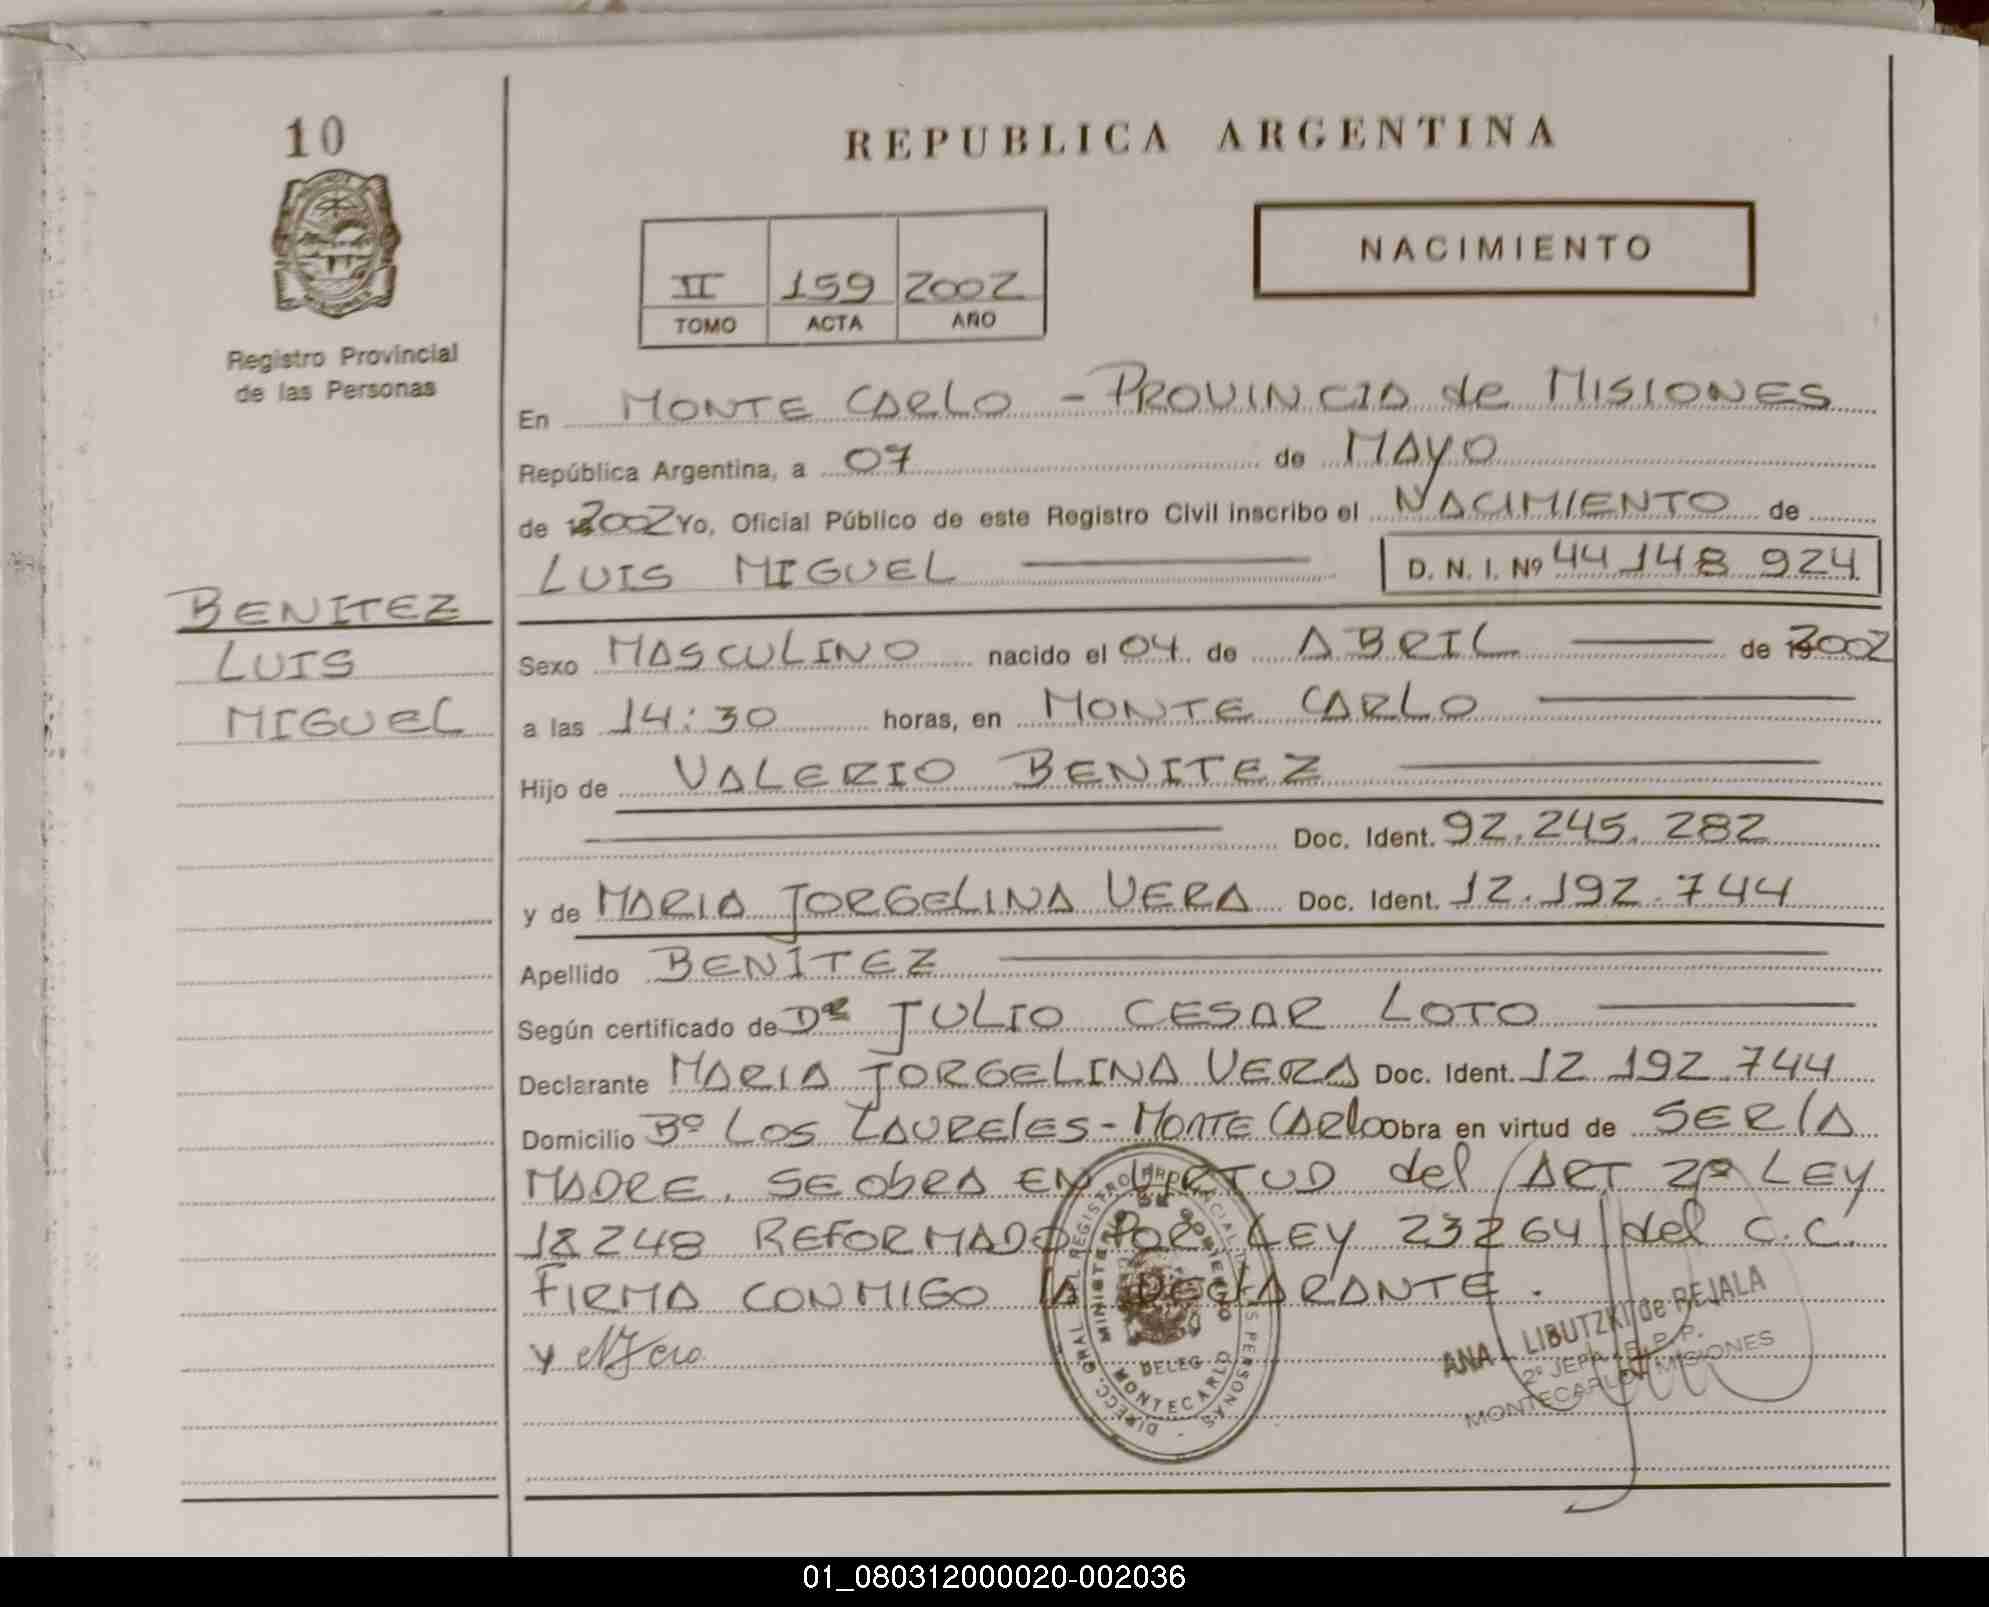 10
REPUBLICA ARGENTINA
NACIMIENTO
II 159 2002
TOMO ACTA AÑO
Registro Provincial
de las Personas
En MONTE CARLO - PROVINCIA de MISIONES
República Argentina, a 07 de MAYO
de 2002 Yo, Oficial Público de este Registro Civil inscribo el NACIMIENTO de
LUIS MIGUEL D. N. I. Nº 44 148 924
BENITEZ
LUIS
MIGUEL
Sexo MASCULINO nacido el 04 de ABRIL de 2002
a las 14:30 horas, en MONTE CARLO
Hijo de VALERIO BENITEZ
Doc. Ident. 92.245.282
y de MARIA JORGELINA VERA Doc. Ident. 12.192.744
Apellido BENITEZ
Según certificado de Dr JULIO CESAR LOTO
Declarante MARIA JORGELINA VERA Doc. Ident. 12 192.744
Domicilio Bº LOS LAURELES - MONTE CARLO Obra en virtud de SER LA
MADRE. SE ObRA EN VIRTUD del ART 2º LEY
18248 REFORMADO POR LEY 23264 del C.C.
FIRMA CONMIGO LA DECLARANTE.
y
DIRECC. GRAL. REGISTRO PROVINCIAL DE LAS PERSONAS
MINISTERIO DE GOBIERNO
DELEG
MONTECARLO
ANA L LIBUTZKI de REJALA
2º JEFA R.P.P.
MONTECARLO MISIONES
01_080312000020-002036